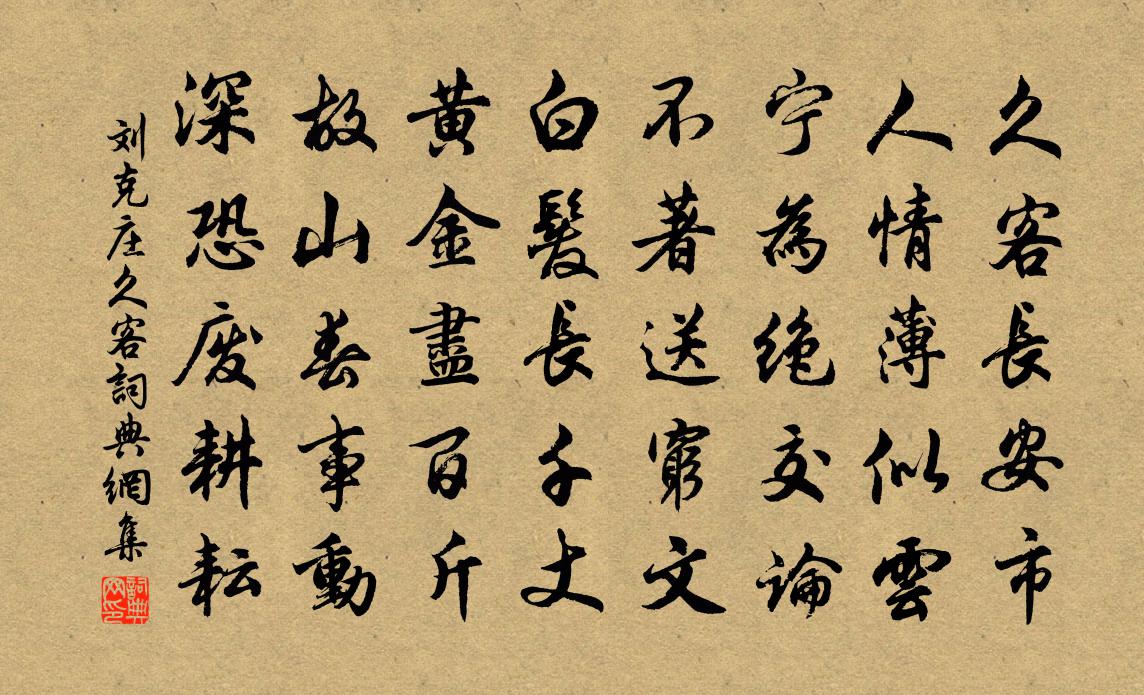 久客長安市
人情薄似雲
宁為絶交論
不著送窮文
白髮長千丈
黄金盡百斤
故山春事動
深恐廢耕耘
刘克庄久客詞典網集
詞典网印